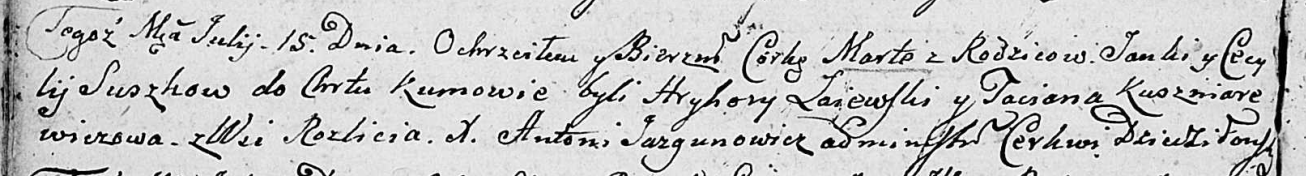 Tegoż Mca Julij. 15. Dnia. Ochrzciłem y Bierzm. Córkę Martę z Rodziców. Janki y Cecy
lij Suszków do Chrtu Kumowie byli Hryhory Łaiewski y Taciana Kuszniare
wiczowa. z Wsi Rozlicia. X. Antoni Jazgunowicz administr Cerkwi Dziedziłow